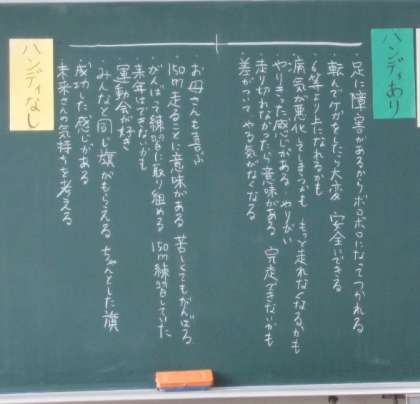 ハンディあり
足に障害があるからボロボロになってつかれる
・転んでケガをしたら大変 安全にできる
・6等より上になれるかも
・病気が悪化してしまうかも もっと走れなくなるかも
・やりきった感じがある やりがい
・走り切れなかったら意味がある 完走できないかも
・差がついて やる気がなくなる
お母さんも喜ぶ
・150m走ることに意味がある 苦しくてもがんばる
・がんばって練習に取り組める 150m練習していた
・来年はできないかも
・運動会が好き
・みんなと同じ旗がもらえる ちゃんとした旗
・成功した感じがある
・未来さんの気持ちを考える
ハンディなし